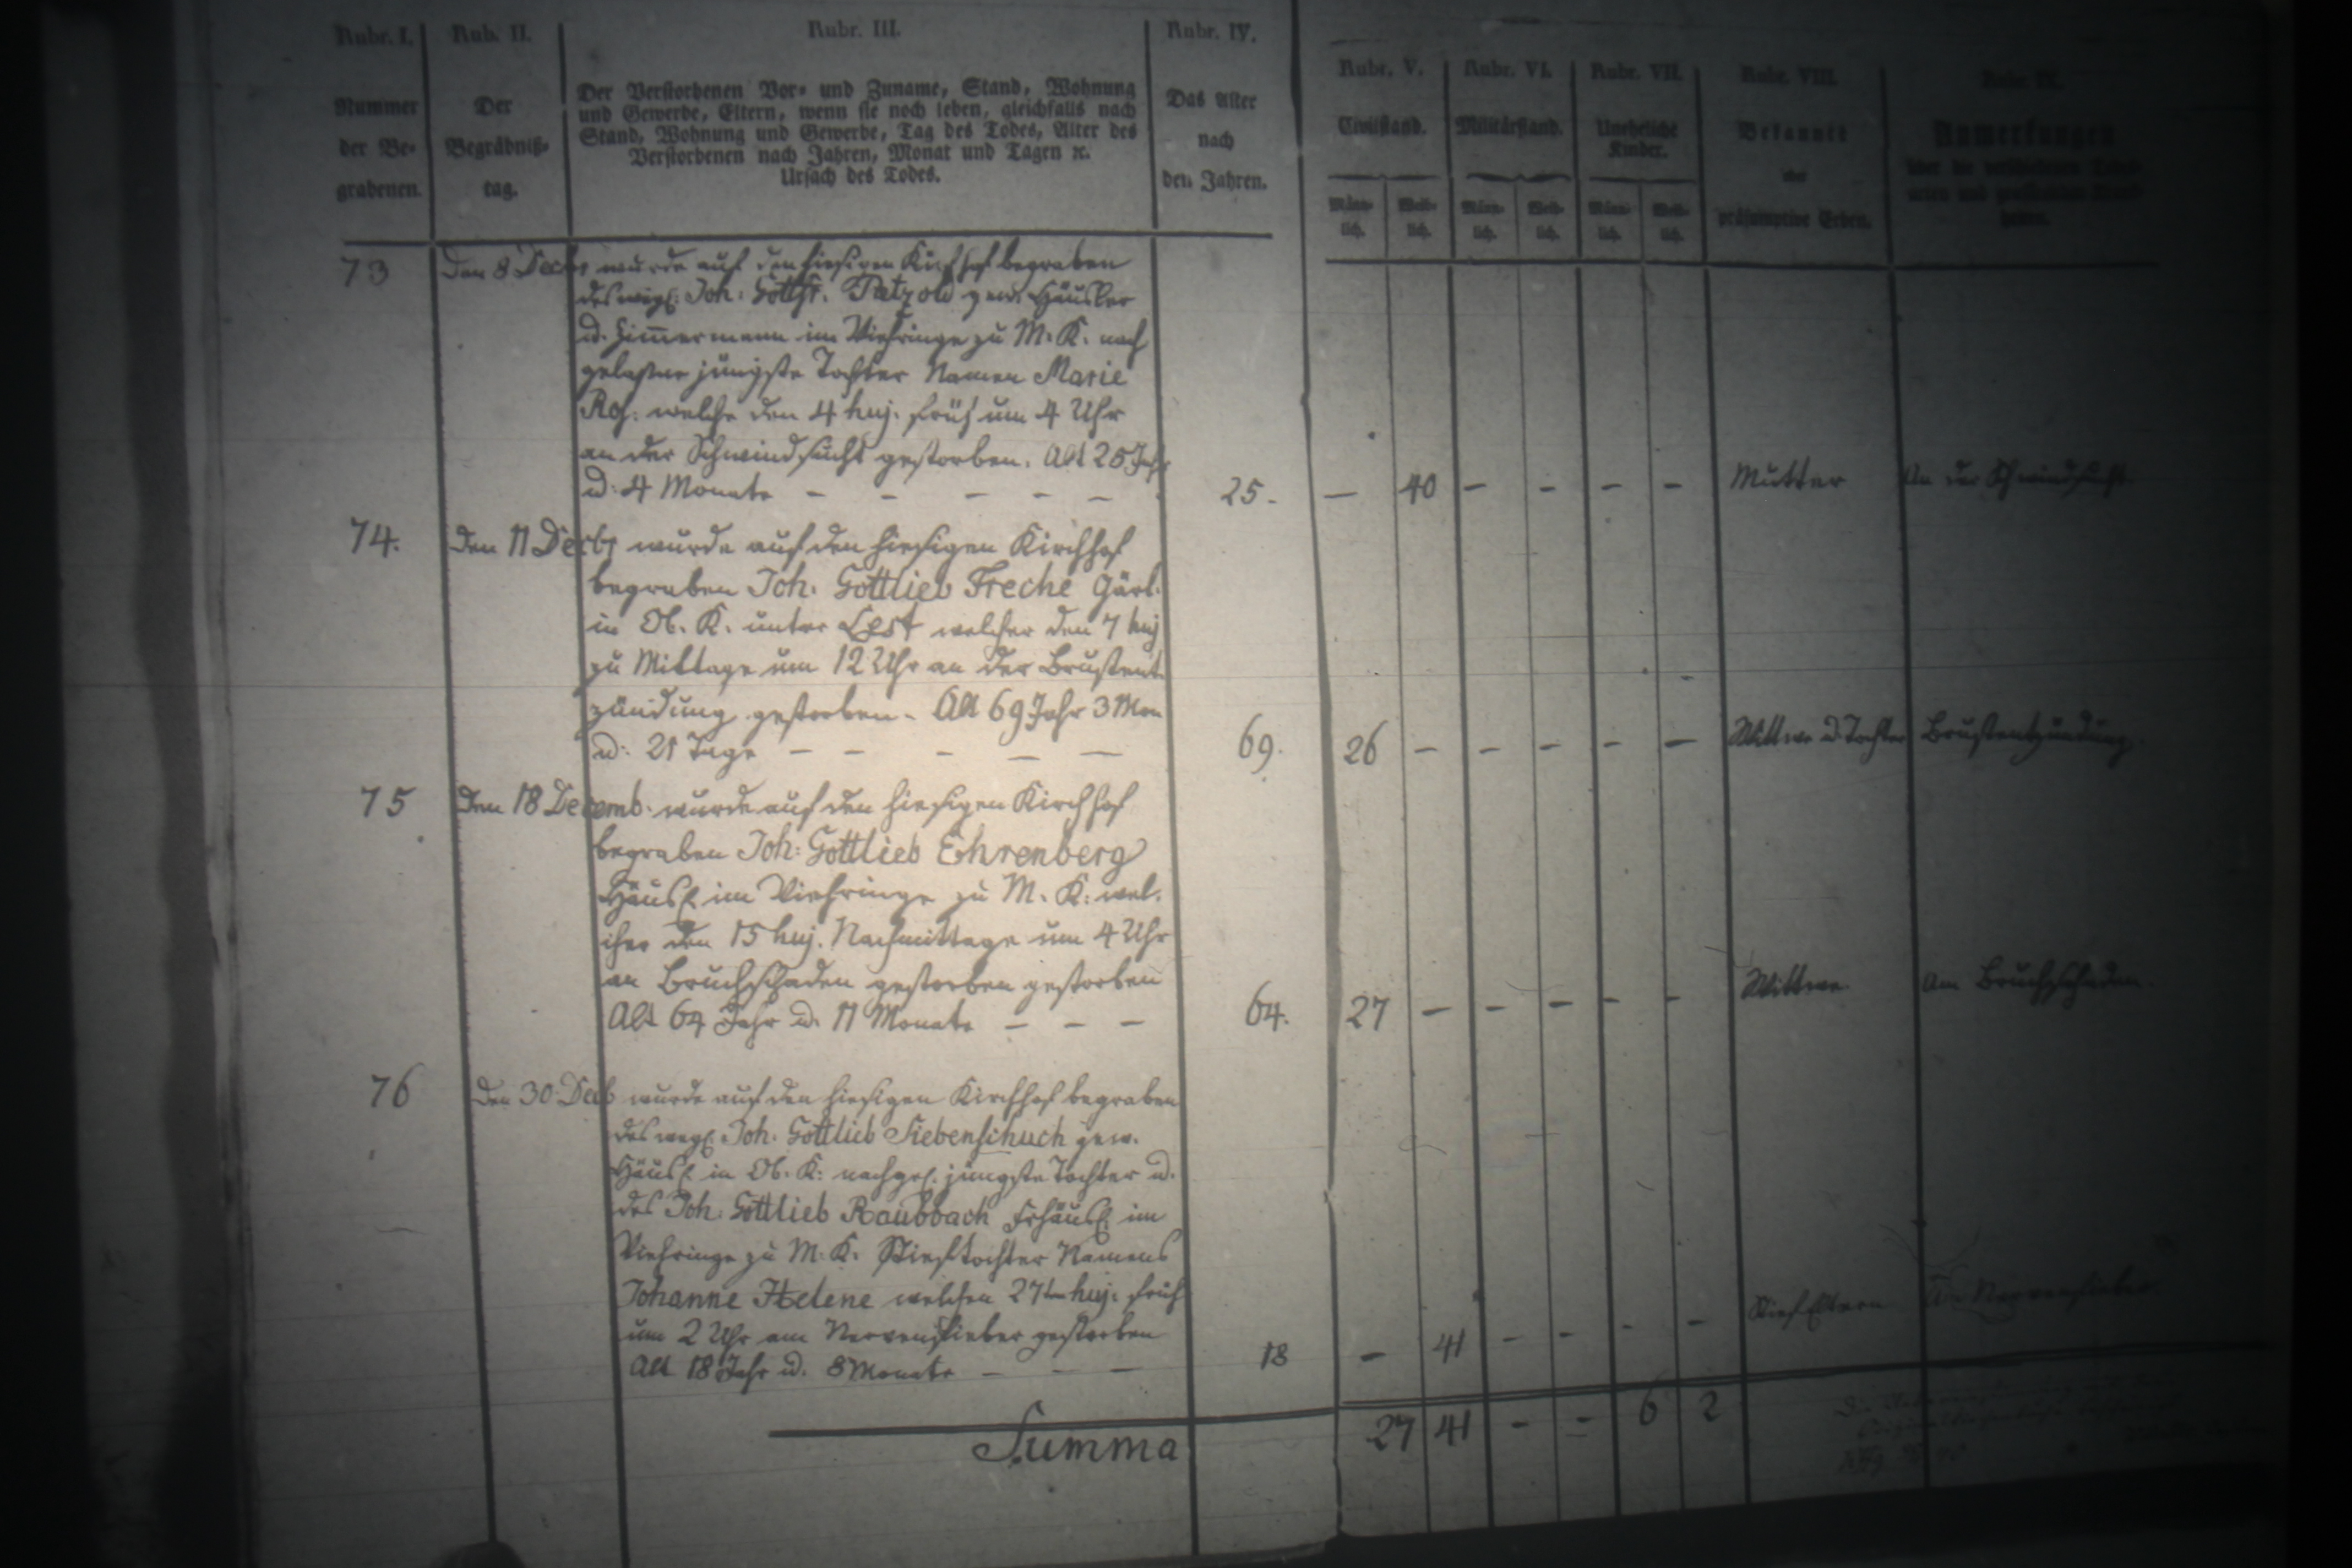 Rubr. I.
Nummer
der Be-
grabenen.
Rub. II.
Der
Begräbniß-
tag.
Rubr. III.
Der Verstorbenen Vor- und Zuname, Stand, Wohnung
und Gewerbe, Eltern, wenn sie noch leben, gleichfalls nach
Stand, Wohnung und Gewerbe, Tag des Todes, Alter des
Verstorbenen nach Jahren, Monat und Tagen ꝛc.
Ursach des Todes.
Rubr. IV.
Das Alter
nach
den Jahren.
Rubr. V.
Civilstand.
Männ-
lich.
Weib-
lich.
Rubr. VI.
Militärstand.
Männ-
lich.
Weib-
lich.
Rubr. VII.
Uneheliche
Kinder.
Männ-
lich.
Weib-
lich.
Rubr. VIII.
Bekannte
oder
präsumtive Erben.
Rubr. IX.
Anmerkungen
73 Den 8 Decbr wurde auf den hiesigen Kirchhof begraben
des weyl: Joh: Gottfr. Patzold gew. Häusler
u. Zim̄ermann im Viehringe zu M. K. nach
gelaßne jüngste Tochter Namen Marie
Ros: welche den 4 huj. früh um 4 Uhr
an der Schwindsucht gestorben. Alt 25 Jahr
u: 4 Monate – – – – – 25. — 40 – – – – Mutter An der Schwindsucht.
74. Den 11 Decbr wurde auf den hiesigen Kirchhof
begraben Joh. Gottlieb Freche Gärt.
in Ob. K. unter Lest welcher den 7 huj
zu Mittage um 12 Uhr an der Brustent
zündung gestorben. Alt 69 Jahr 3 Mon
u: 21 Tage – – – – – 69. 26 – – – – – Wittwe u Tochter Brustentzündung.
75 Den 18 Decemb. wurde auf den hiesigen Kirchhof
begraben Joh: Gottlieb Ehrenberg
Häusl. im Viehringe zu M. K: wel.
cher den 15 huj. Nachmittage um 4 Uhr
an Bruchschaden gestorben gestorben
Alt 64 Jahr u. 11 Monate – – – 64. 27 – – – – – Wittwe. Am Bruchschaden.
76 Den 30 Decb wurde auf den hiesigen Kirchhof begraben
des weyl. Joh. Gottlieb Siebenschuch gew.
Häusl. in Ob. K: nachgel. jüngste Tochter u.
des Joh. Gottlieb Raubbach Frhäusl. im
Viehringe zu M. K. Stieftochter Namens
Johanne Helene welchen 27ten huj. früh
um 2 Uhr am Nervenfieber gestorben
Alt 18 Jahr u. 8 Monate – – – 18 – 41 – – – – Stief Eltern Am Nervenfieber
Summa 27 41 – – 6 2